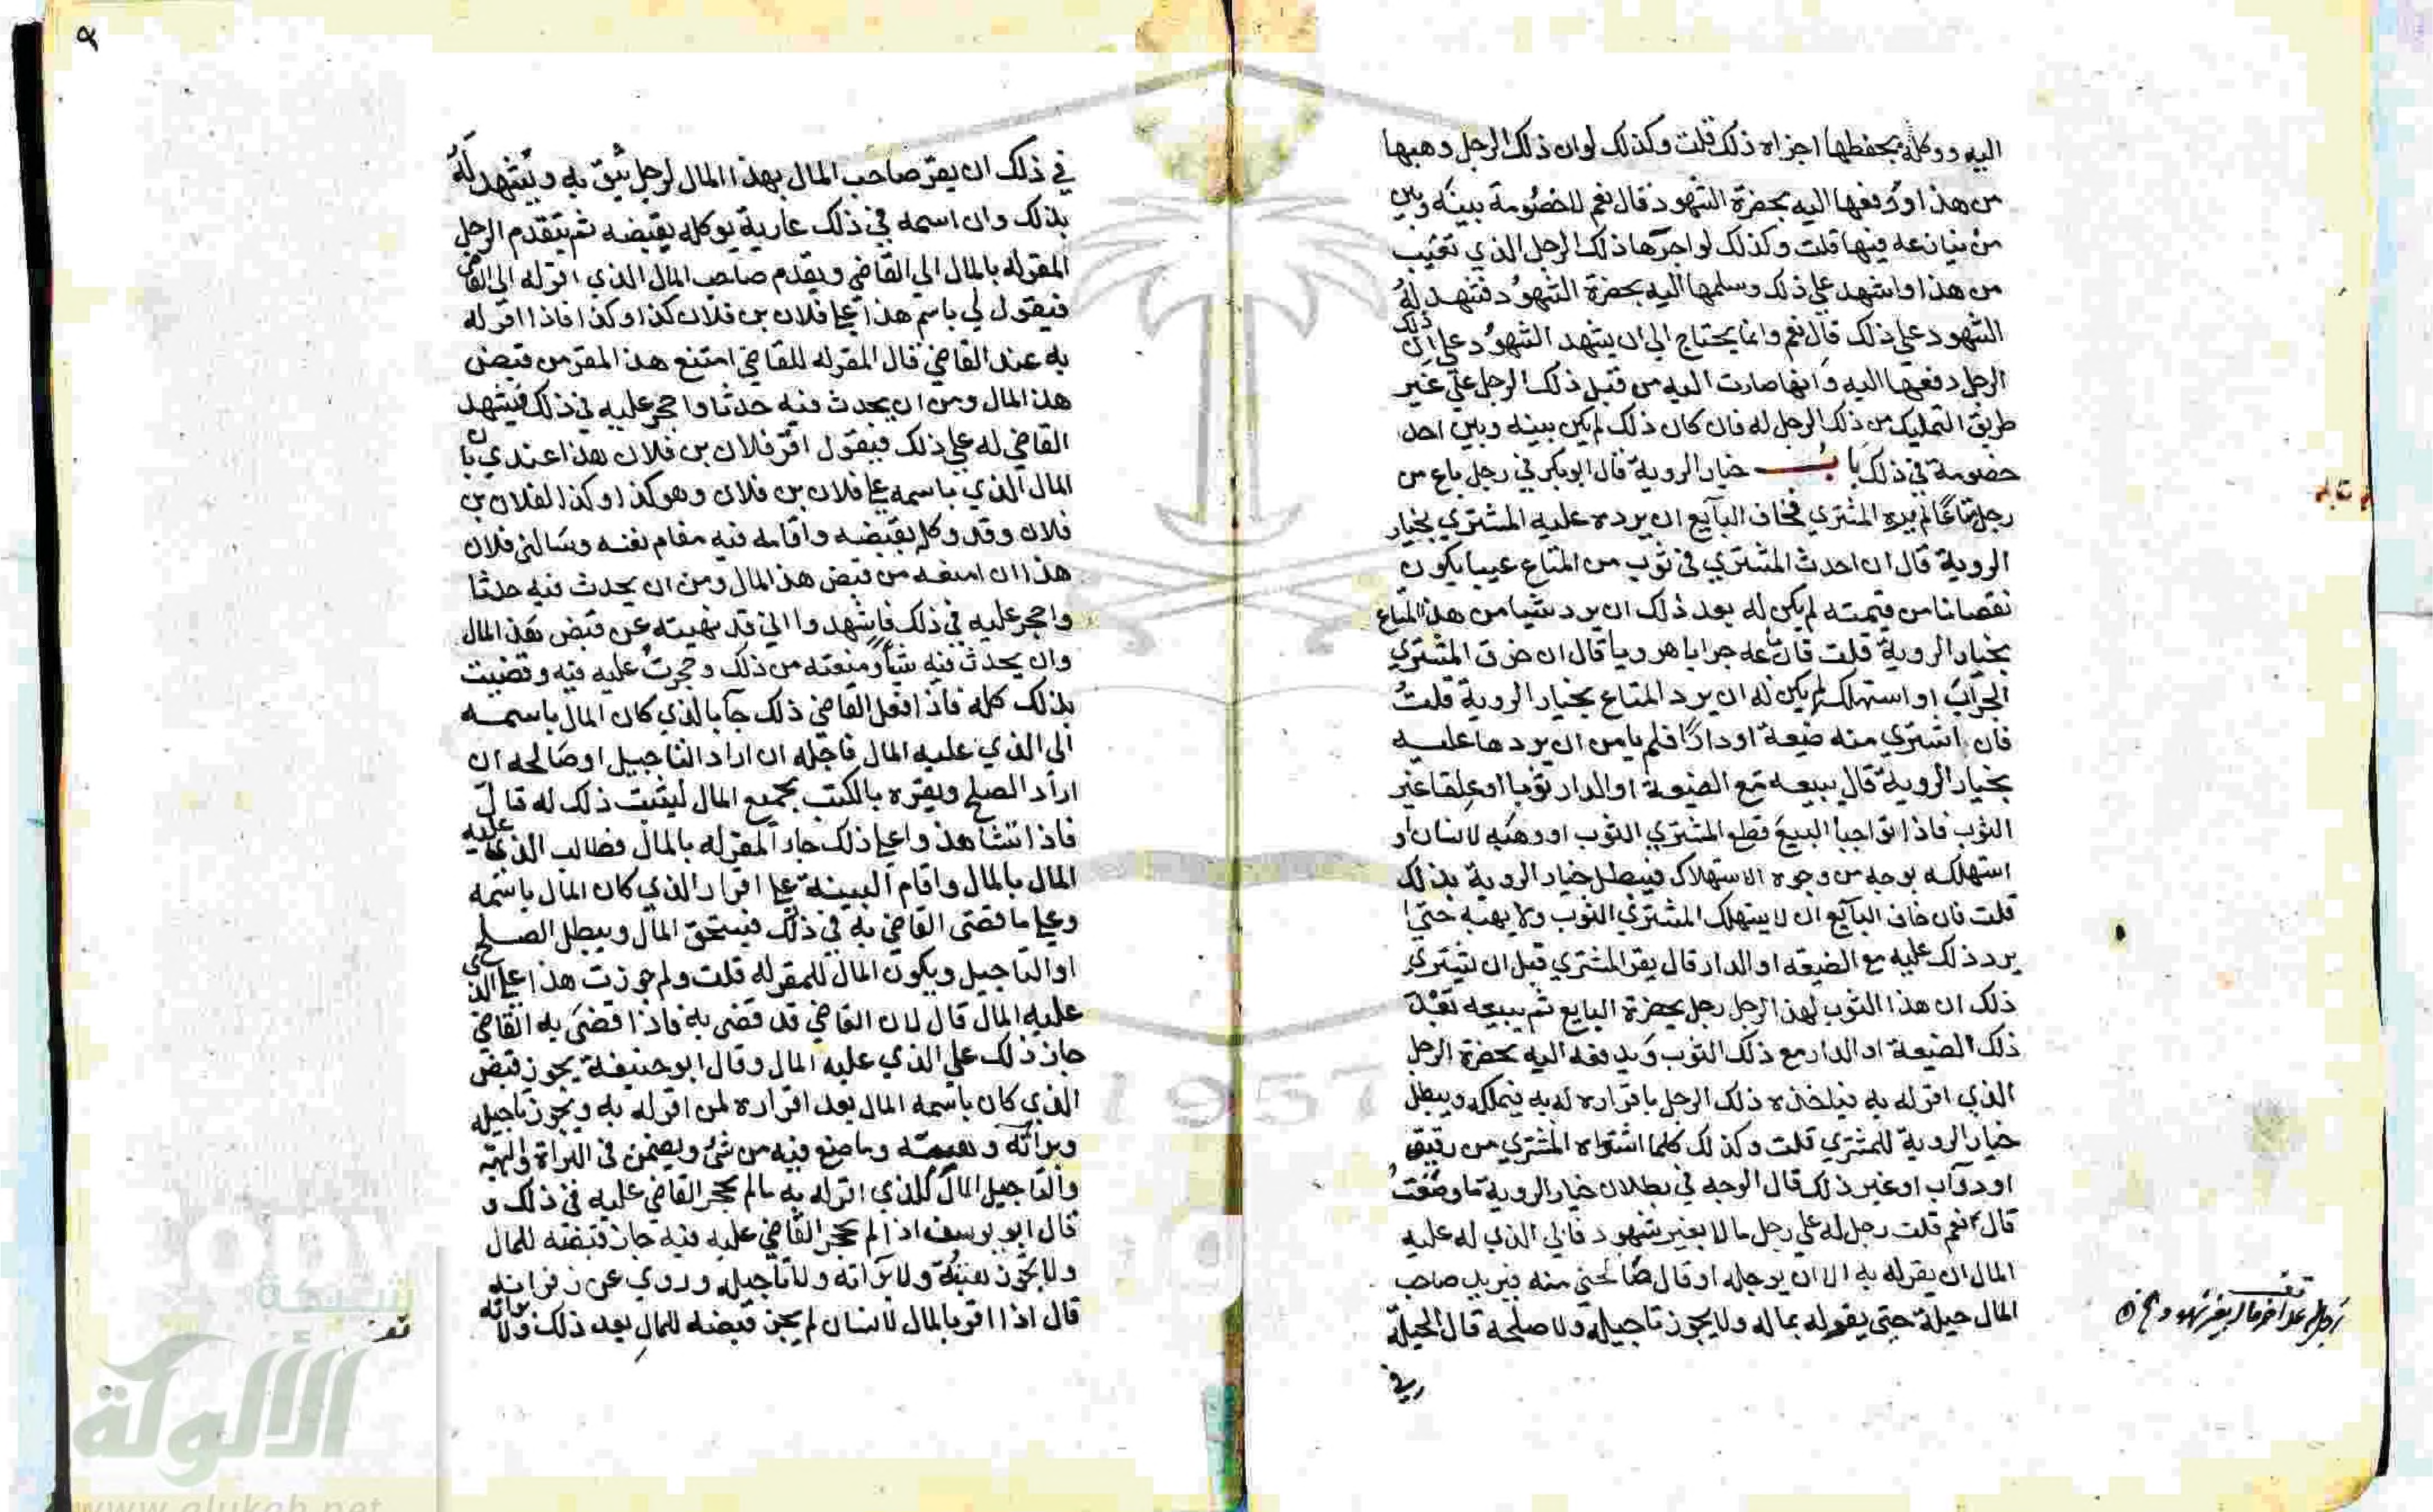 اليه ووكله بحفظها اجزاه ذلك قلت وكذلك لو ان ذلك الرجل وهبها
من هذا او دفعها اليه بحضرة الشهود قال نعم لا خصومة بينه وبين
من ينازعه فيها قلت وكذلك لو اجرها ذلك الرجل الذي تغيب
من هذا واشهد علي ذلك وسلمها اليه بحضرة الشهود فشهد له
الشهود علي ذلك قال نعم وانما يحتاج الي ان يشهد الشهود علي ان ذلك
الرجل دفعها اليه وانها صارت اليه من قبل ذلك الرجل علي غير
طريق التمليك من ذلك الرجل له فان كان ذلك لم يكن بينه وبين احد
خصومة في ذلك باب خيار الروية قال ابو بكر في رجل باع من
رجل متاعا لم يره المشتري فخاف البايع ان يرده عليه المشتري بخيار
الروية قال ان احدث المشتري في ثوب من المتاع عيبا يكون
نقصانا من قيمته لم يكن له بعد ذلك ان يرد شيا من هذا المتاع
بخيار الروية قلت فان باعه جرابا هرويا قال ان خرق المشتري
الجراب او استهلكه لم يكن له ان يرد المتاع بخيار الروية قلت
فان اشتري منه ضيعة او دارا فلم يامن ان يردها عليه
بخيار الروية قال يبيعه مع الضيعة او الدار ثوبا او علقا غير
الثوب فاذا تواجبا البيع قطع المشتري الثوب او وهبه لانسان او
استهلكه بوجه من وجوه الاستهلاك فيبطل خيار الروية بذلك
قلت فان خاف البايع ان لا يستهلك المشتري الثوب ولا يهبه حتي
يرد ذلك عليه مع الضيعة او الدار قال يقر المشتري قبل ان يشتري
ذلك ان هذا الثوب لهذا الرجل رجل بحضرة البايع ثم يبيعه بعد
ذلك الضيعة او الدار مع ذلك الثوب ويدفعه اليه بحضرة الرجل
الذي اقر له به فياخذه ذلك الرجل باقراره له به فيملكه ويبطل
خيار الروية للمشتري قلت وكذلك كلما اشتراه المشتري من رقيق
او دوآب او غير ذلك قال الوجه في بطلان خيار الروية ما وصفت
قال نعم قلت رجل له علي رجل مالا بغير شهود فابي الذي له عليه
المال ان يقر له به الا ان يوجله او قال صالحني منه فيريد صاحب
المال حيلة حتي يقر له بماله ولا يجوز تاجيله ولا صلحه قال الحيلة
في
في ذلك ان يقر صاحب المال بهذا المال لرجل يثق به ويشهد له
بذلك وان اسمه في ذلك عارية يوكله بقبضه ثم يتقدم الرجل
المقر له بالمال الي القاضي ويقدم صاحب المال الذي اقر له الي القاضي
فيقول لي باسم هذا علي فلان بن فلان كذا وكذا فاذا اقر له
به عند القاضي قال المقر له للقاضي امتنع هذا المقر من قبض
هذا المال ومن ان يحدث فيه حدثا واحجر عليه في ذلك فيشهد
القاضي له علي ذلك فيقول اقر فلان بن فلان هذا عندي بان
المال الذي باسمه علي فلان بن فلان وهو كذا وكذا لفلان بن
فلان وقد وكله بقبضه واقامه فيه مقام نفسه وسالني فلان
هذا ان امنعه من قبض هذا المال ومن ان يحدث فيه حدثا
واحجر عليه في ذلك فاشهدوا اني قد نهيته عن قبض هذا المال
وان يحدث فيه شيأ ومنعته من ذلك وحجرت عليه فيه وقضيت
بذلك كله فاذا فعل القاضي ذلك جآ بالذي كان المال باسمه
الي الذي عليه المال فاجله ان اراد التاجيل او صالحه ان
اراد الصلح ويقره بالكتب بجميع المال ليثبت ذلك له قال
فاذا تشاهدوا علي ذلك جاء المقر له بالمال فطالب الذي عليه
المال بالمال واقام البينة علي اقرار الذي كان المال باسمه
وعلي ما قضى القاضي به في ذلك فيستحق المال ويبطل الصلح
او التاجيل ويكون المال للمقر له قلت ولم جوزت هذا علي الذي
عليه المال قال لان القاضي قد قضى به فاذا قضى به القاضي
جاز ذلك علي الذي عليه المال وقال ابو حنيفة يجوز قبض
الذي كان باسمه المال بعد اقراره لمن اقر له به ويجوز تاجيله
وبرآته وهبته وما صنع فيه من شئ ويضمن في البرآة والهبة
والتاجيل المال للذي اقر له به ما لم يحجر القاضي عليه في ذلك و
قال ابو يوسف اذا لم يحجر القاضي عليه فيه جاز قبضه للمال
ولا يجوز هبته ولا برآته ولا تاجيله وروي عن زفر انه
قال اذا اقر بالمال لانسان لم يجز قبضه للمال بعد ذلك ولا
1957
شبكة
الألوكة
www.alukah.net